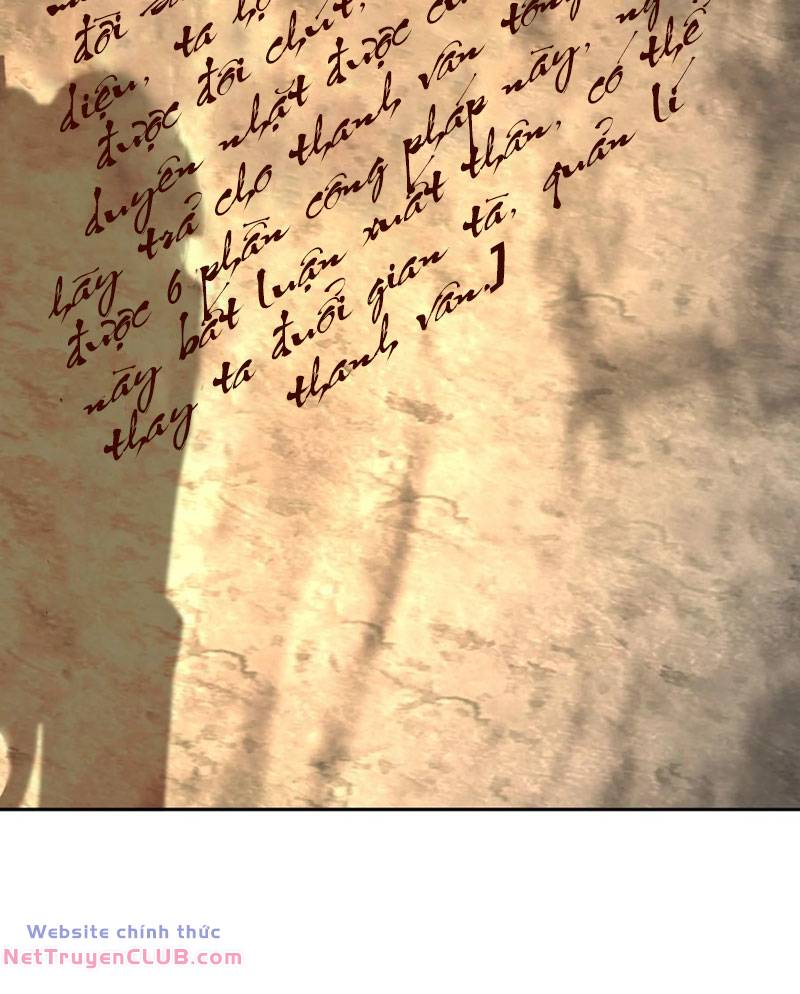 đồi
diệu, ta
được đôi chút,
duyên nhặt được
hãy trả cho thanh vân tông
được 6 phần công pháp này,
này bất luận xuất thân, có thể
thay ta đuổi gian tà, quản lí
thanh vân.]
Website chính thức
NetTruyenCLUB.com